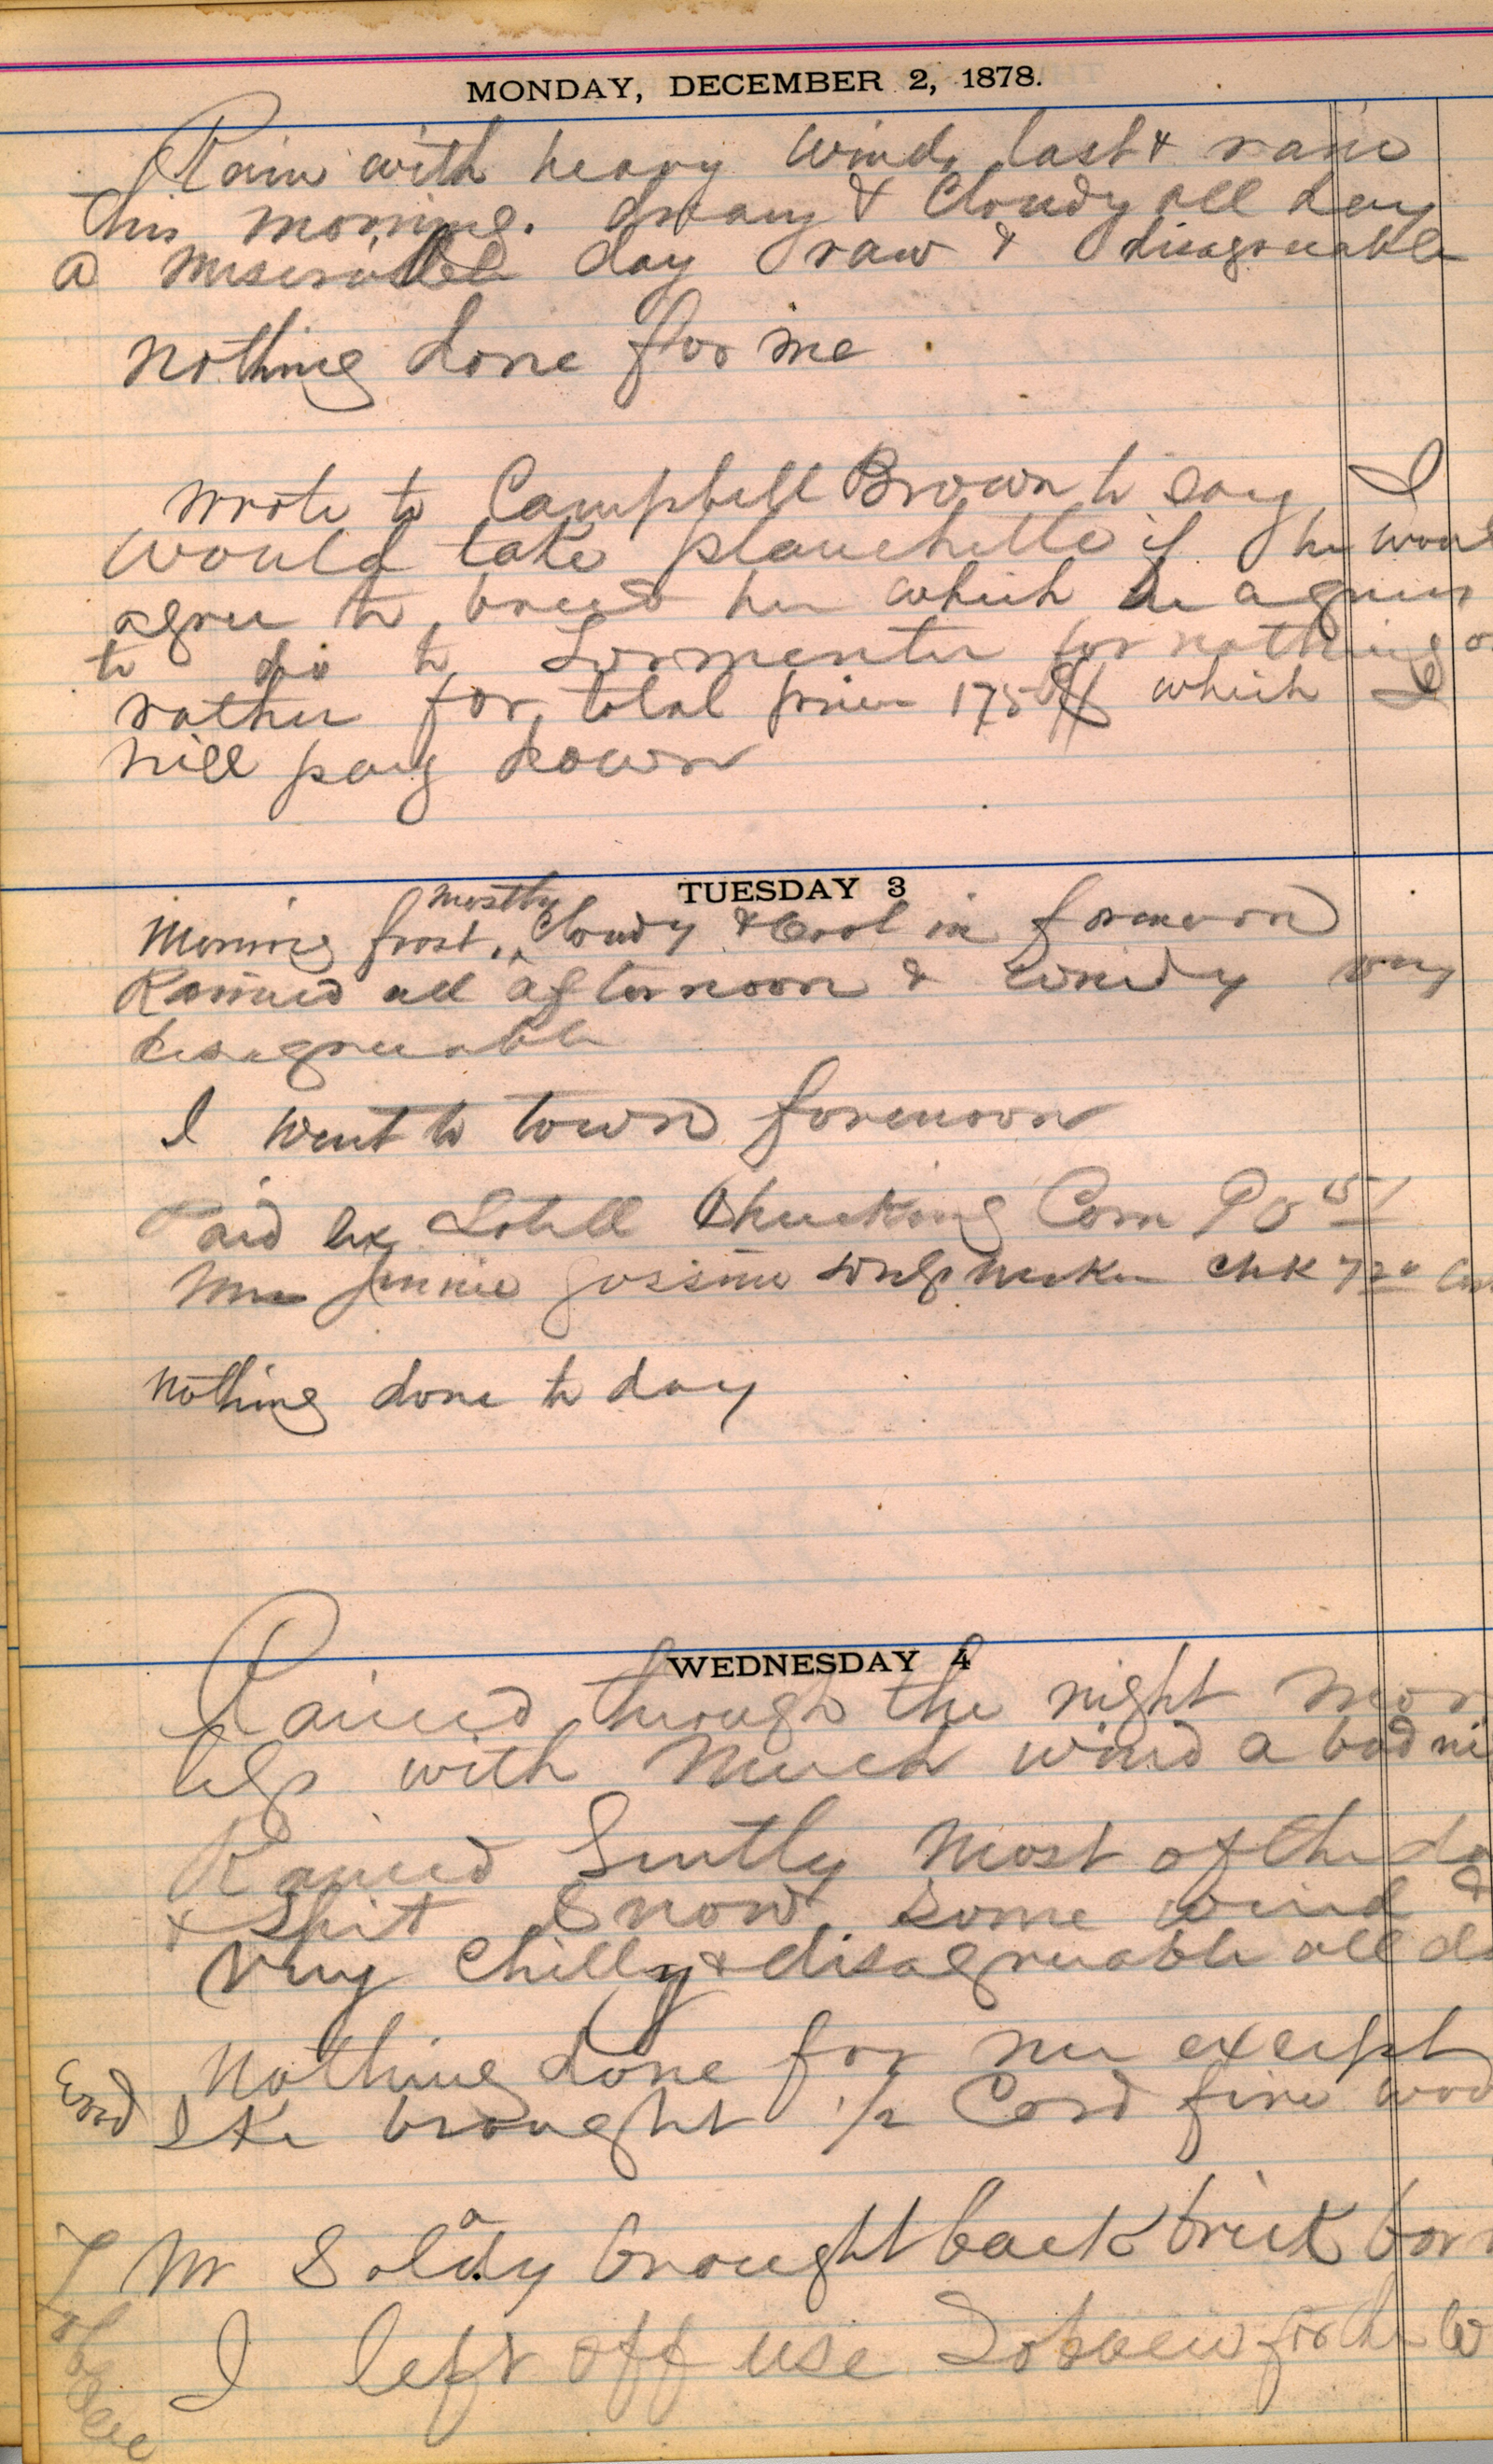 MONDAY, DECEMBER 2, 1878.
Rain with heavy wind last & rain
this morning. & Cloudy all day
a miserable day raw & disagreeable
nothing done for me
wrote to Campbell Brown to say I
would take planchette if he woul
agree to breed her which he agrees
to do to Tormentor for nothing or
rather for total price 175 which I
will pay down
TUESDAY 3
mostly
Morning frost. Cloudy & Cool in forenoon
Rained all afternoon & windy very
disagreeable
I went to town forenoon
Paid Shucking Corn
Mrs Jennie chk
nothing done to day
WEDNESDAY 4
Rained through the night mor
less with much wind a bad ni
Rained Gently most of the da
& Spit Snow. Some wind &
very chilly & disagreeable all da
Nothing done for me except
Cord Ike brought 1/2 Cord fire woo
Mr brought back brick
I left off use Tobacco for the W
Tobacco